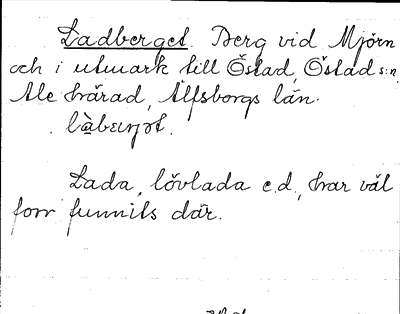 Ladberget. Berg vid Mjörn
och i utmark till Östad, Östad s:n,
Ale härad, Älfsborgs län.

Lada, lövlada e.d., har väl
forr funnits där.